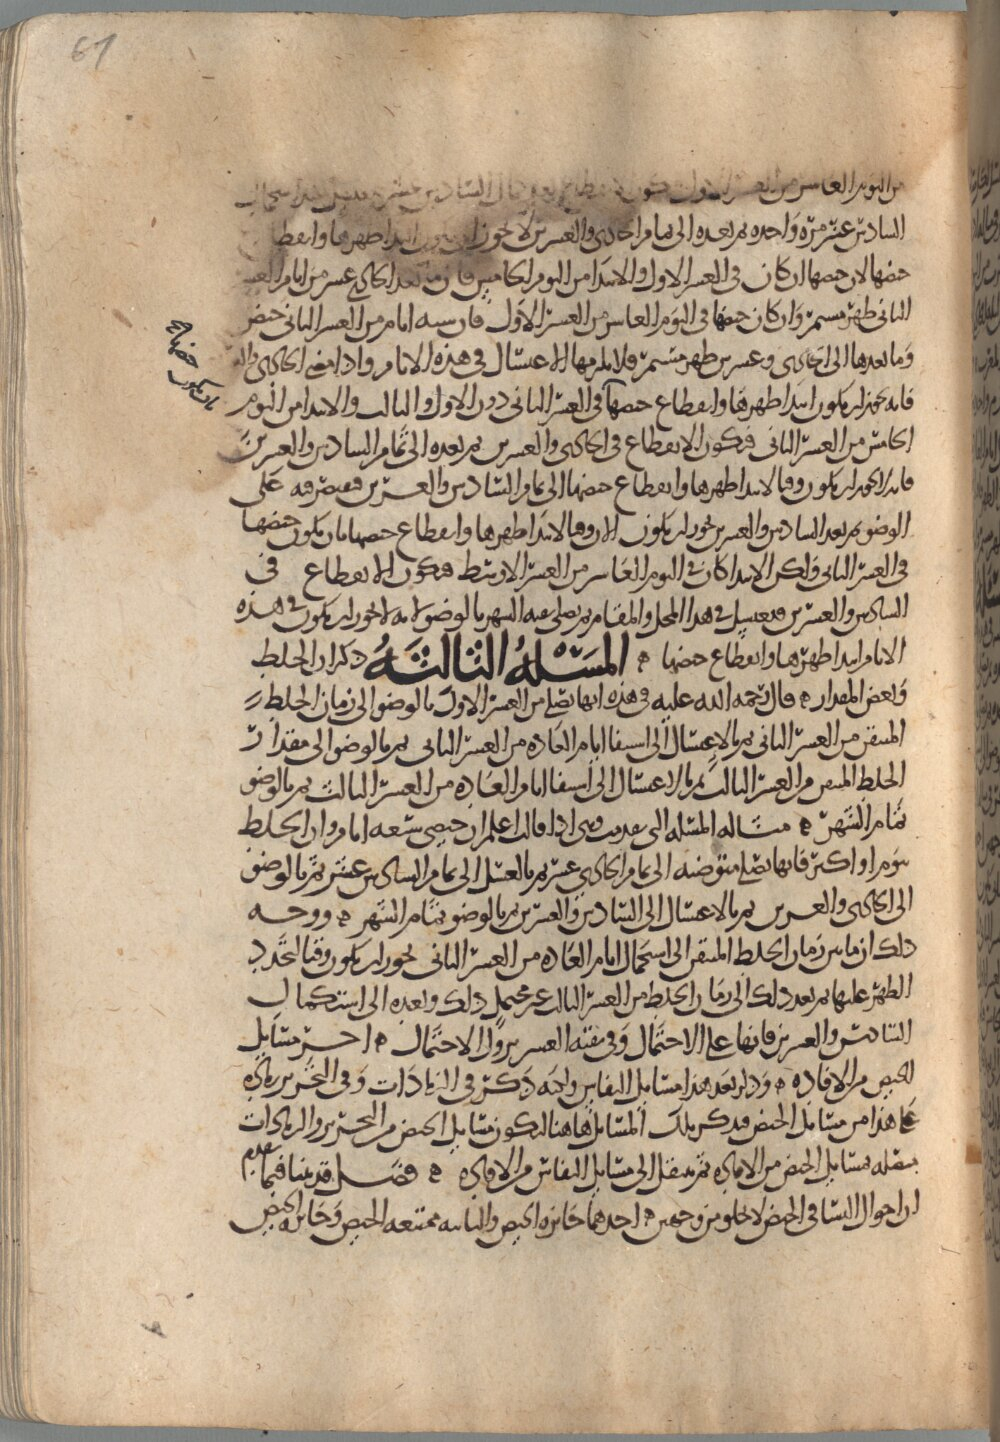 61
من اليوم العاشر من العشر الاول فكون السادس عشر
السادس عشر مره واحده ثم بعده الى تمام الحادى والعشرين لا يجوز ان يكون ابتدا طهرها وانقطاع
حيضها لان حيضها ان كان فى العشر الاول والابتدا من اليوم الخامس فان ما بعد الحادى عشر من ايام العشر
الثانى طهر مستمر وان كان حيضها فى اليوم العاشر من العشر الاول فان ستة ايام من العشر الثانى حيض
وما بعدها الى احدى وعشرين طهر مستمر فلا يلزمها الاغتسال فى هذه الايام واذا مضى الحادى والعشرين
فانه يجوز ان يكون ابتدا طهرها وانقطاع حيضها فى العشر الثانى دون الاول والثالث والابتدا من اليوم
بان يكون حيضها
الخامس من العشر الثانى فيكون الانقطاع فى الحادى والعشرين ثم بعده الى تمام السادس والعشرين
فانه لا يجوز ان يكون وقتا لابتدا طهرها وانقطاع حيضها الى تمام السادس والعشرين فيقتصر فيه على
الوضو ثم بعد السادس والعشرين يجوز ان يكون الان وقتا لابتدا طهرها وانقطاع حيضها بان يكون حيضها
فى العشر الثانى ولكن الابتدا كان فى اليوم العاشر من العشر الاوسط فيكون الانقطاع فى
السادس والعشرين فتغتسل فى هذا المحل والمقام ثم تصلى بقية الشهر بالوضو لانه لا يجوز ان يكون فى هذه
الايام ابتدا طهرها وانقطاع حيضها ۞ المسئلة الثالثة ذكر ان الخلط
وبعض المقدار ۞ قال رحمه الله عليه فى هذه انها تصلى من العشر الاول بالوضو الى زمان الخلط
المتيقن من العشر الثانى ثم بالاغتسال الى استيفا ايام العادة من العشر الثانى ثم بالوضو الى مقدار
الخلط المتيقن من العشر الثالث ثم بالاغتسال الى استيفا ايام العادة من العشر الثالث ثم بالوضو
تمام الشهر ۞ مثاله المسئلة التى تقدمت وهى اذا قالت اعلم ان حيضى سبعة ايام وان الخلط
يوم او اكثر فانها تصلى متوضية الى تمام الحادى عشر ثم بالغسل الى تمام السادس عشر ثم بالوضو
الى الحادى والعشرين ثم بالاغتسال الى السادس والعشرين ثم بالوضو تمام الشهر ۞ ووجه
ذلك ان ما بين زمان الخلط المتيقن الى استكمال ايام العادة من العشر الثانى يجوز ان يكون وقتا لتجدد
الطهر عليها ثم بعد ذلك الى زمان الخلط من العشر الثالث غير محتمل ذلك وبعده الى استكمال
السادس والعشرين فانها على الاحتمال وفى بقية العشر يزول الاحتمال ۞ اخر مسايل
الحيض من الافادة ۞ وذكر بعد هذا مسايل النفاس وانه ذكر فى الزيادات وفى التحرير زيادة
على هذا من مسايل الحيض فنذكر تلك المسايل هاهنا لتكون مسايل الحيض من التحرير والزيادات
متصلة بمسايل الحيض من الافادة ثم ننتقل الى مسايل النفاس من الافادة ۞ فصل قد بينا فيما تقدم
ان احوال النسا فى الحيض لا تخلو من وجهين ۞ احدهما جايزة الحيض والثانية ممتنعة الحيض وجايزة الحيض